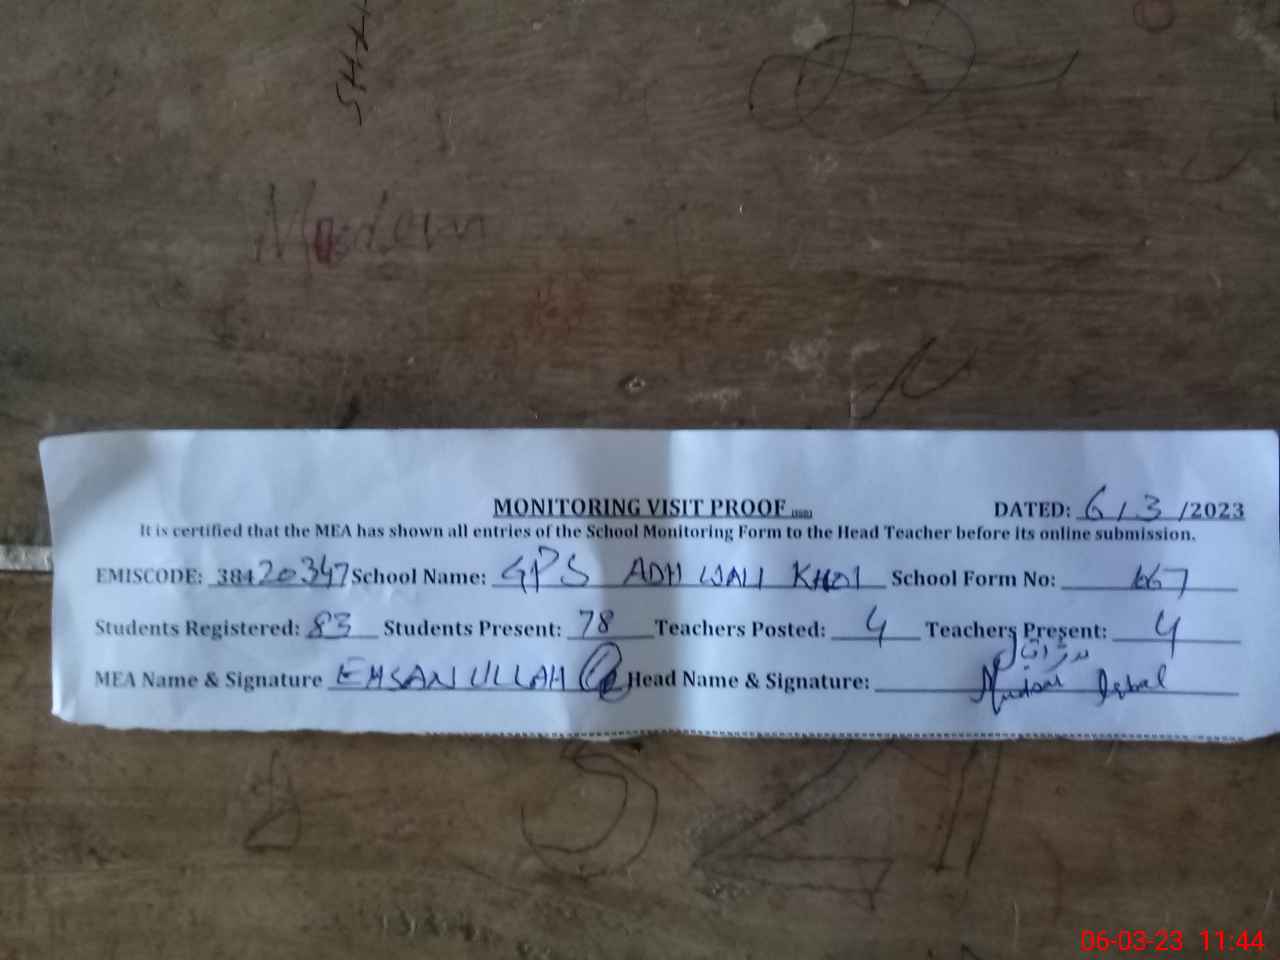 SHA
Modern
MONITORING VISIT PROOF
DATED: 6/3/2023
It is certified that the MEA has shown all entries of the School Monitoring Form to the Head Teacher before its online submission.
EMISCODE: 38420347 School Name: GPS ADHI WALI KHOI School Form No: 667
Students Registered: 83 Students Present: 78 Teachers Posted: 4 Teachers Present: 4
MEA Name & Signature EHSAN ULLAH Head Name & Signature: Mudsar Iqbal
06-03-23 11:44